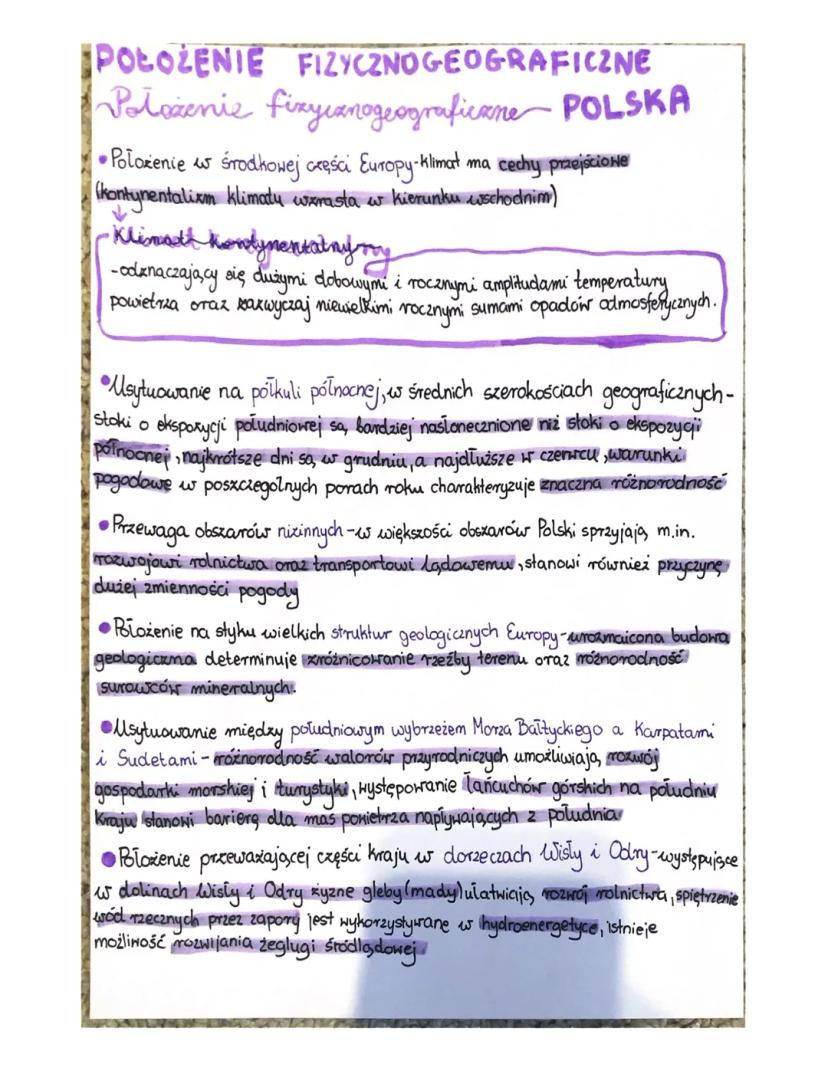 POŁOŻENIE FIZYCZNOGEOGRAFICZNE
Położenie fizycznogeograficzne POLSKA
• Położenie w środkowej części Europy-klimat ma cechy przejściowe
(kontynentalizm klimatu wzrasta w kierunku wschodnim)
Klimat kontynentalny
-odznaczający się dużymi dobowymi i rocznymi amplitudami temperatury
powietrza oraz zazwyczaj niewielkimi rocznymi sumami opadów atmosferycznych.
• Usytuowanie na półkuli północnej, w średnich szerokościach geograficznych-
stoki o ekspozycji południowej są bardziej nasłonecznione niż stoki o ekspozycji
północnej, najkrótsze dni są w grudniu, a najdłuższe w czerwcu, warunki
pogodowe w poszczególnych porach roku charakteryzuje znaczna różnorodność
• Przewaga obszarów nizinnych - w większości obszarów Polski sprzyjają m.in.
rozwojowi rolnictwa oraz transportowi lądowemu, stanowi również przyczynę
dużej zmienności pogody
• Położenie na styku wielkich struktur geologicznych Europy-urozmaicona budowa
geologiczna determinuje zróżnicowanie rzeźby terenu oraz różnorodność
surowców mineralnych.
• Usytuowanie między południowym wybrzeżem Morza Bałtyckiego a Karpatami
i Sudetami - różnorodność walorów przyrodniczych umożliwiają rozwój
gospodarki morskiej i turystyki, występowanie łańcuchów górskich na południu
kraju stanowi barierę dla mas powietrza napływających z południa
• Położenie przeważającej części kraju w dorzeczach Wisły i Odry-występujące
w dolinach Wisły i Odry żyzne gleby (mady) ułatwiają rozwój rolnictwa, spiętrzenie
wód rzecznych przez zapory jest wykorzystywane w hydroenergetyce, istnieje
możliwość rozwijania żeglugi śródlądowej.